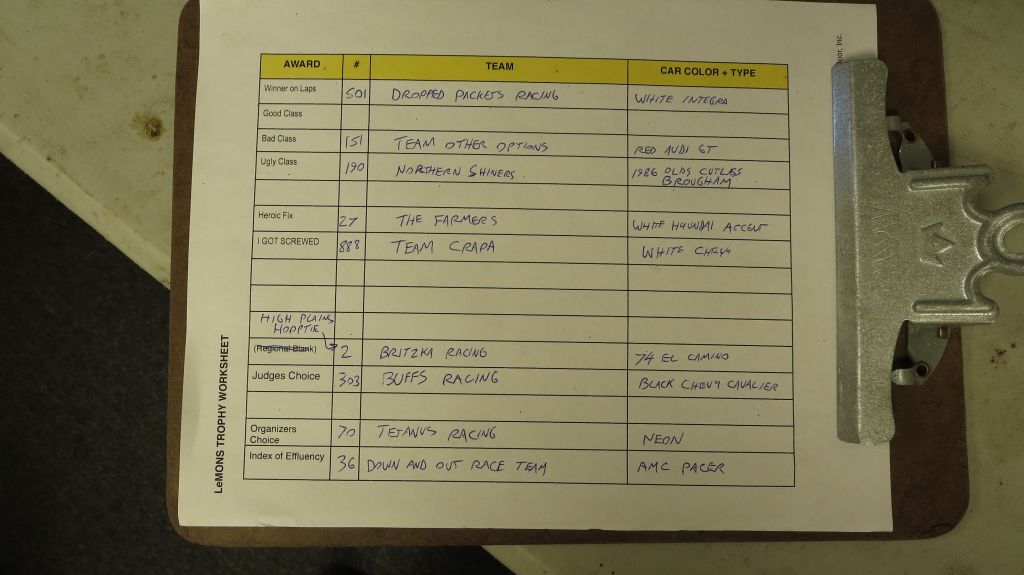 oor, Inc.
AWARD # TEAM CAR COLOR + TYPE
Winner on Laps 501 DROPPED PACKETS RACING WHITE INTEGRA
Good Class
Bad Class 151 TEAM OTHER OPTIONS RED AUDI GT
Ugly Class 190 NORTHERN SHINERS 1986 OLDS CUTLASS
BROUGHAM
Heroic Fix 27 THE FARMERS WHITE HYUNDAI ACCENT
I GOT SCREWED 888 TEAM CRAPA WHITE CHEVY
HIGH PLAINS
HOOPTIE
(Regional Blank) 2 BRITZKA RACING 74 EL CAMINO
Judges Choice 303 BUFFS RACING BLACK CHEVY CAVALIER
Organizers
Choice 70 TETANUS RACING NEON
Index of Effluency 36 DOWN AND OUT RACE TEAM AMC PACER
LeMONS TROPHY WORKSHEET